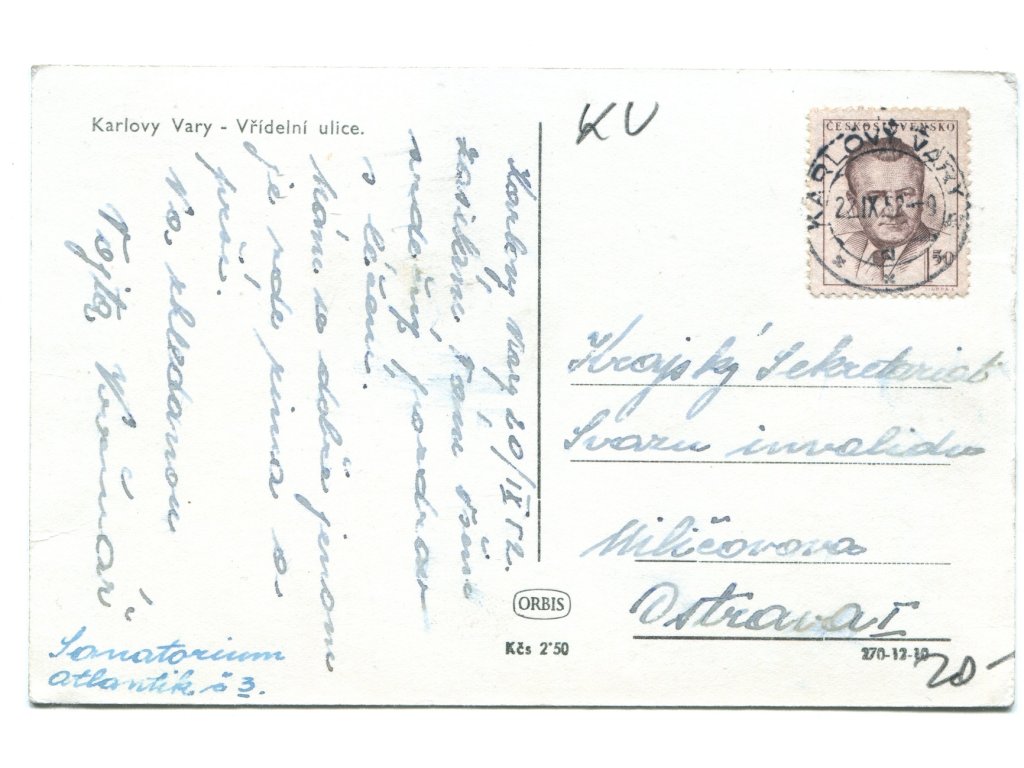 Karlovy Vary - Vřídelní ulice.
KV
ČESKOSLOVENSKO
KARLOVY VARY
22.IX.52-9
1 50
Karlovy Vary 20/IX 52.
zasílám Vám všem
srdečný pozdrav
s léčení.
Mám se dobře jenom
je zde zima a
prší.
Vojta
Sanatorium
atlantik č 3.
Krajský Sekretariat
Svazu invalidu
Miličovova
Ostrava I
ORBIS
Kčs 2·50
270-12-10
20-